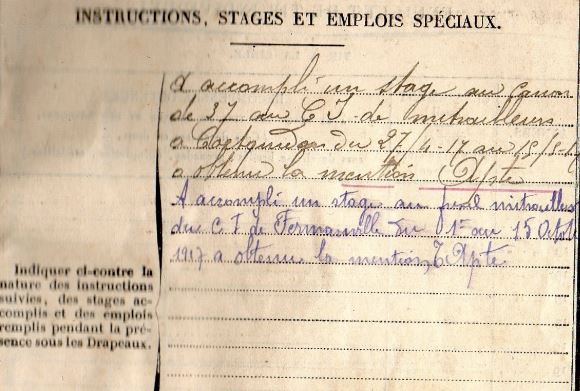 INSTRUCTIONS, STAGES ET EMPLOIS SPÉCIAUX.
A accompli un stage au canon
de 37 au C I de mitrailleurs
a Coetquidan du 27/4-17 au 15/5-17
a obtenu la mention Apte
A accompli un stage au fusil mitrailleur
du C I de Fermanville du 1er au 15 Octob
1917 a obtenu la mention, Apte
Indiquer ci-contre la
nature des instructions
suivies, des stages ac-
complis et des emplois
remplis pendant la pré-
sence sous les Drapeaux.